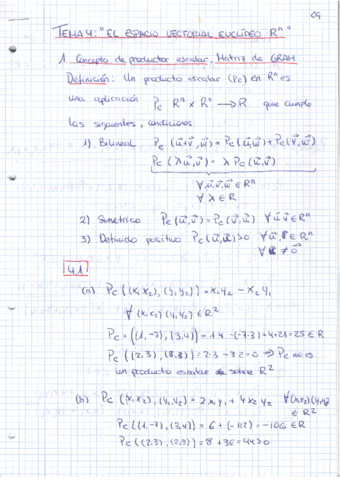 C9
TEMA 4: "EL ESPACIO VECTORIAL EUCLÍDEO Rⁿ"
1. Concepto de productor escalar, Matriz de GRAM
Definición: Un producto escalar (Pc) en Rⁿ es
una aplicación Pc Rⁿ x Rⁿ → R que cumple
las siguientes condiciones:
1) Bilineal Pc (u⃗+v⃗, w⃗) = Pc (u⃗,w⃗) + Pc (v⃗,w⃗)
Pc (λu⃗,v⃗) = λ Pc (u⃗,v⃗)
∀ u⃗,v⃗,w⃗ ∈ Rⁿ
∀ λ ∈ R
2) Simetrico Pc (u⃗,v⃗) = Pc (v⃗,u⃗) ∀ u⃗ v⃗ ∈ Rⁿ
3) Definido positivo Pc (u⃗,u⃗) > 0 ∀ u⃗ ∈ Rⁿ
≠ 0⃗
4.1
(a) Pc ((x₁,x₂), (y₁,y₂)) = x₁y₂ - x₂y₁
∀ (x₁,x₂) (y₁,y₂) ∈ R²
Pc = ((1,-7), (3,4)) = 1·4 - (-7·3) = 4+21 = 25 ∈ R
Pc ((2,3), (2,3)) = 2·3 - 3·2 = 0 → Pc no es
un producto escalar sobre R²
(b) Pc (x₁,x₂), (y₁,y₂) = 2x₁y₁ + 4x₂y₂ ∀ (x₁,x₂) (y₁,y₂)
∈ R²
Pc ((1,-7), (3,4)) = 6 + (-112) = -106 ∈ R
Pc ((2,3), (2,3)) = 8 + 36 = 44 > 0